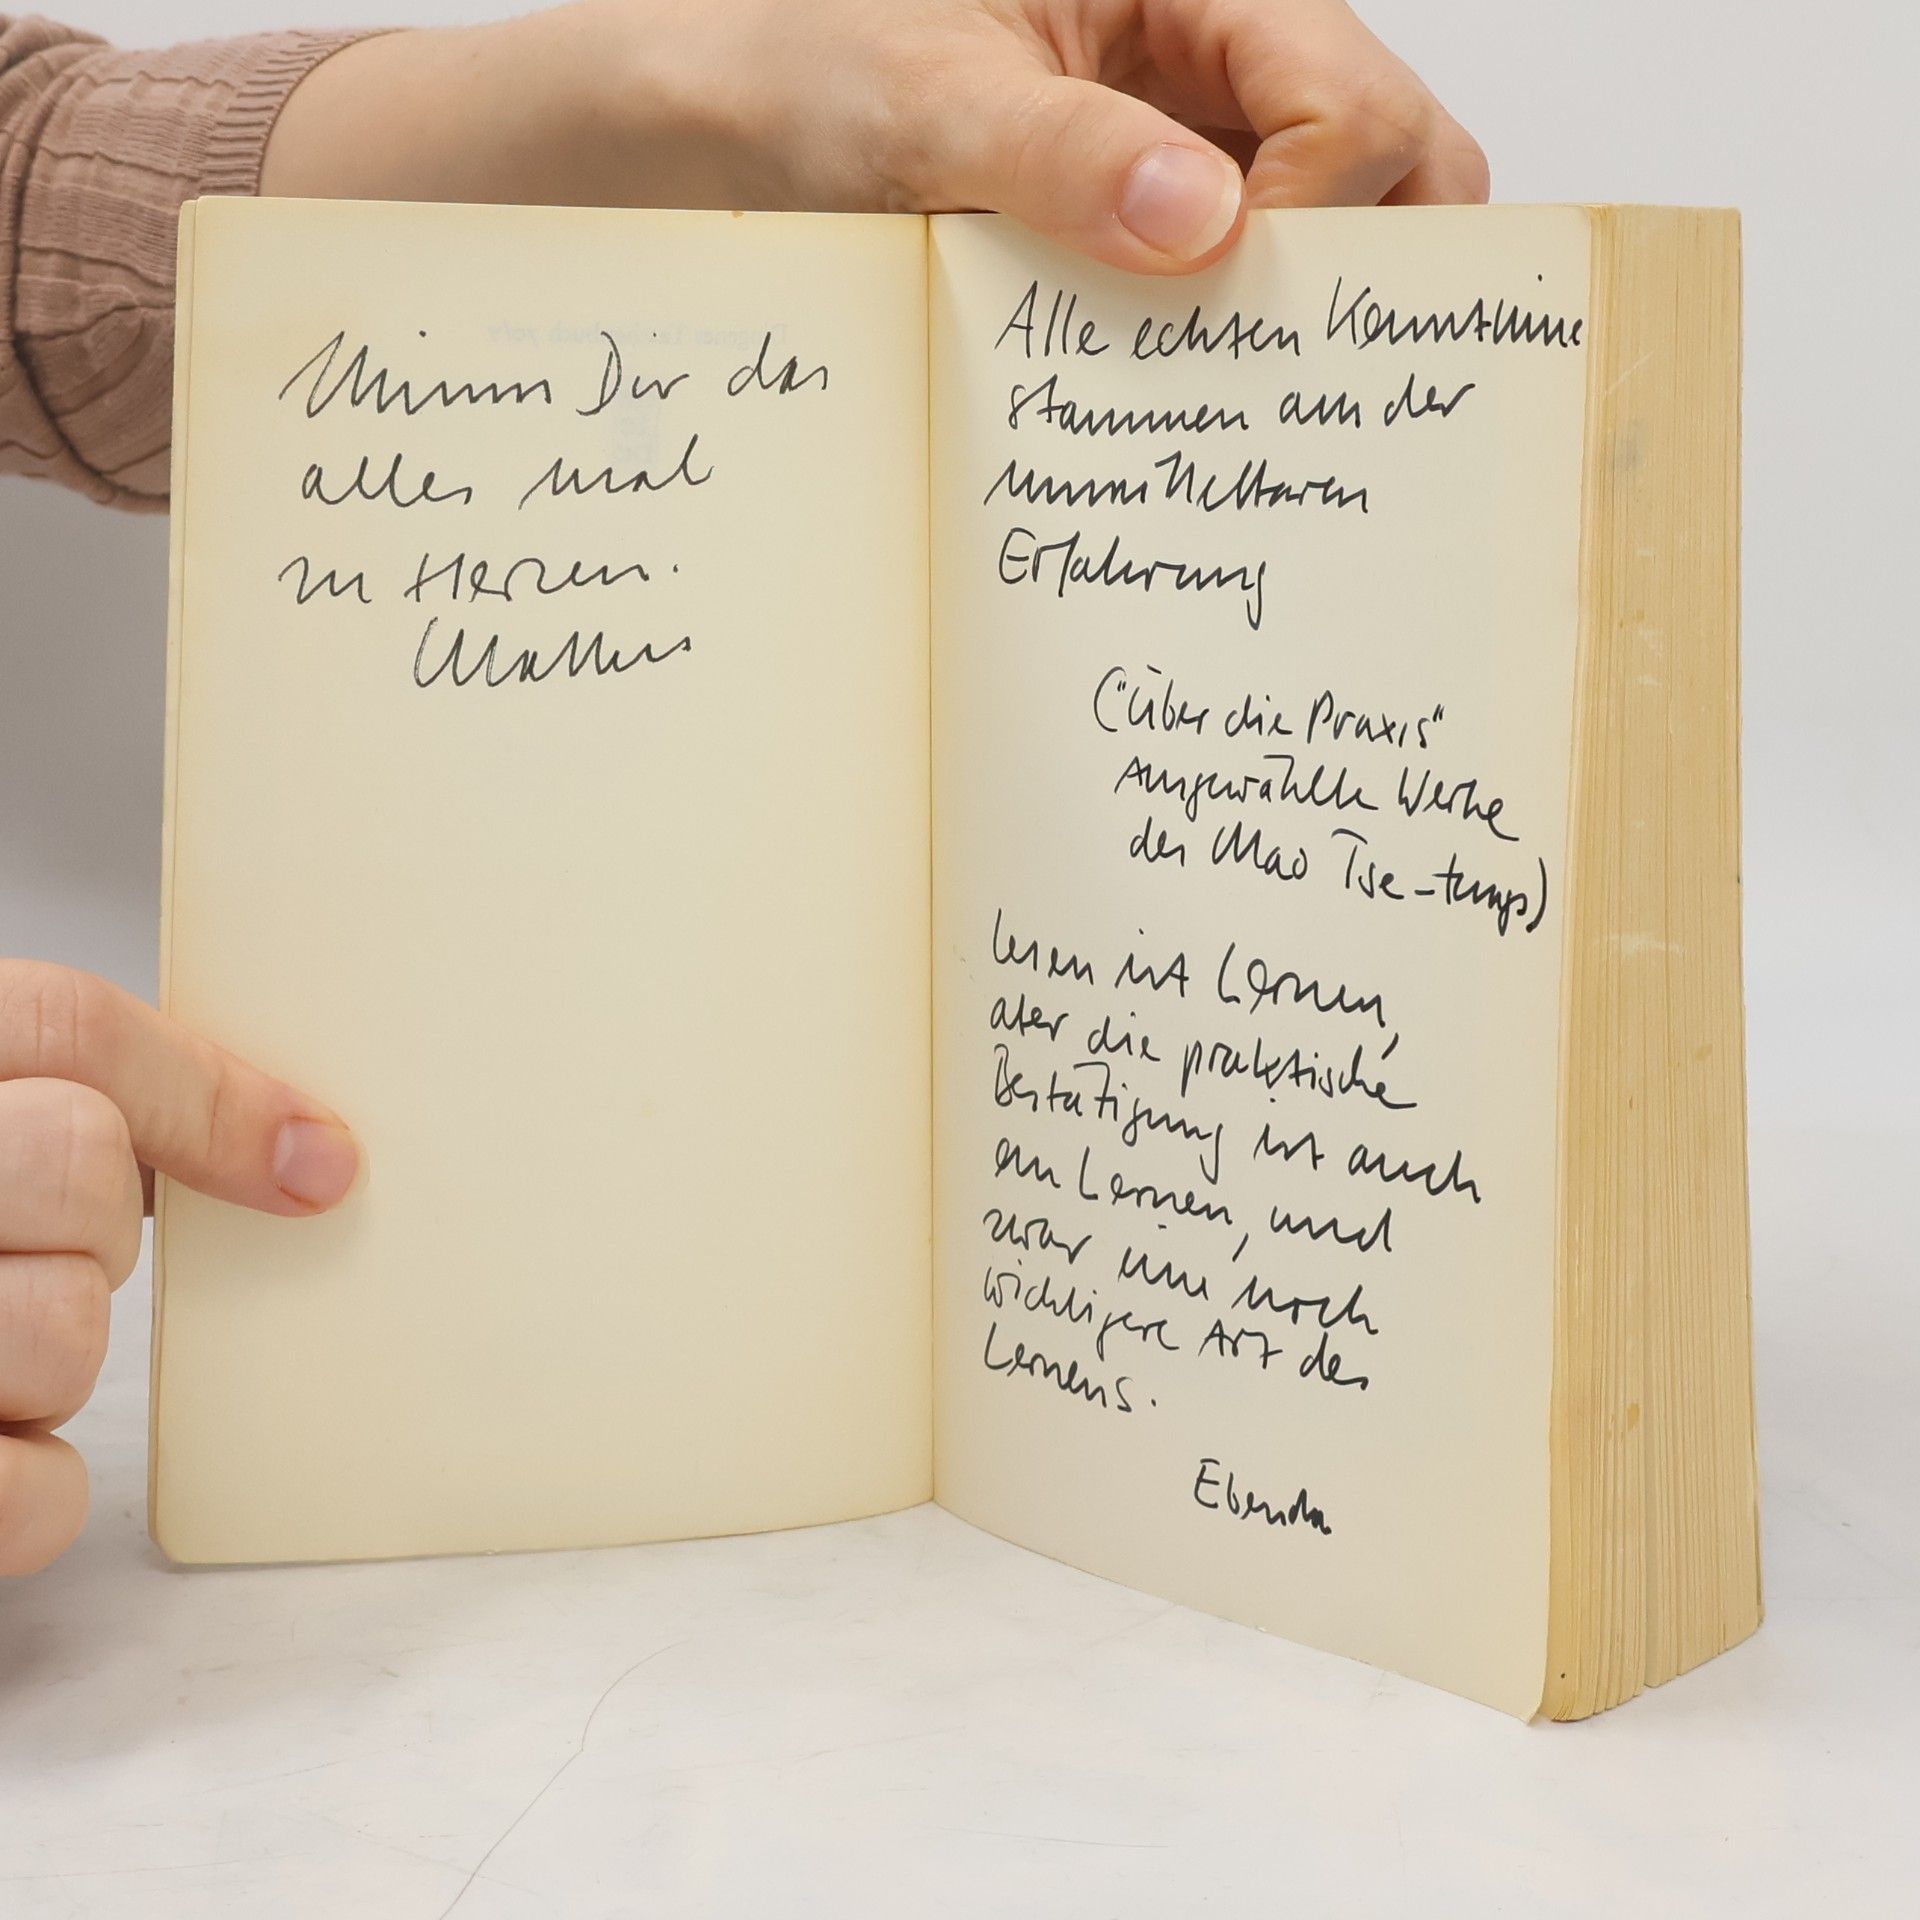 Nimm Dir das
alles mal
zu Herzen.
Alle echten Kenntnisse
stammen aus der
unmittelbaren
Erfahrung
("Über die Praxis"
Ausgewählte Werke
des Mao Tse-tungs)
Lesen ist Lernen,
aber die praktische
Bestätigung ist auch
ein Lernen, und
zwar eine noch
wichtigere Art des
Lernens.
Ebenda